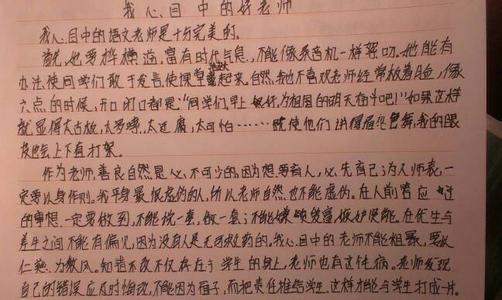 我心目中的好老师
我心目中的语文老师是十分完美的。
首先,他要样横溢,富有时代气息,不能像录音机一样絮叨。他能有
办法使同学们敢于发言,使课堂起来。自然,我也不喜欢老师经常板着面,像
六点的时候,开口闭口都是:"同学们早上好,为祖国的明天奋斗吧!"如果这样
就显得太古板,太罗嗦,太迂腐,太可怕……使他们讲得眉飞色舞,我的眼
皮也会上下直打架。
作为老师,善良自然是必不可少的,因为想要育人,必先自己为人师表,一
定要以身作则。我平身最恨虚伪的人,所以老师自然也不能虚伪。在人前答应过
的事想一定要做到,不能说一套,做一套;不能
差生之间不能有偏见,因为没有人是无可救药的。我心目中的老师不能粗暴,要以
仁慈为教风。知错不改不仅存在于学生的身上,老师也有这传病。老师发现
自己的错误应及时悔改,不能因为面子,而把责任推给学生,这样才能与学生打成一片。